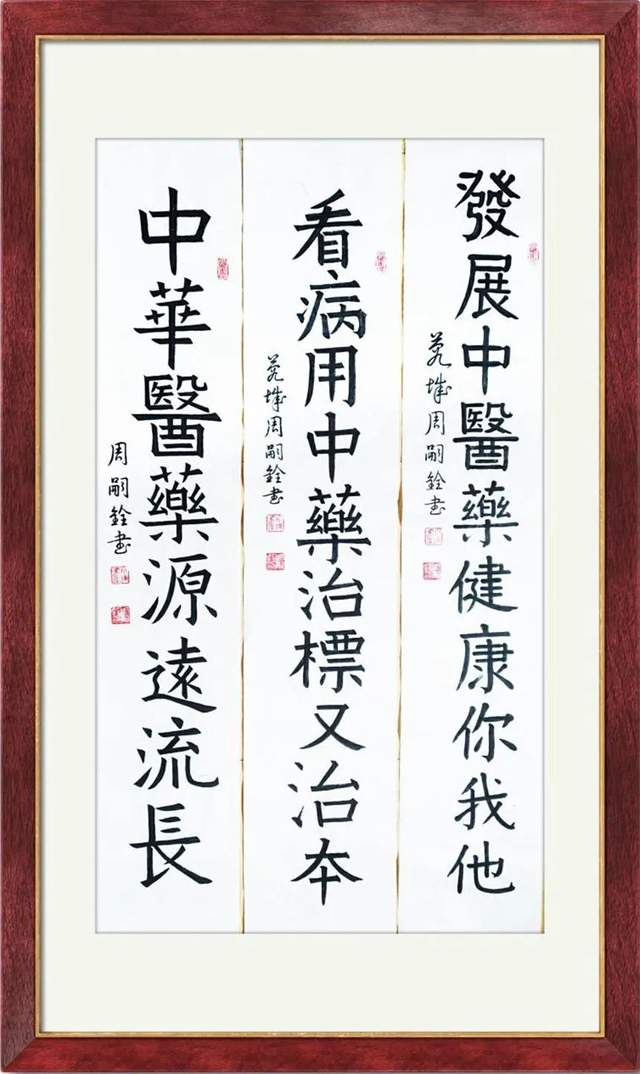 發展中醫藥健康你我他
莞城周嗣銓書
看病用中藥治標又治本
莞城周嗣銓書
中華醫藥源遠流長
周嗣銓書